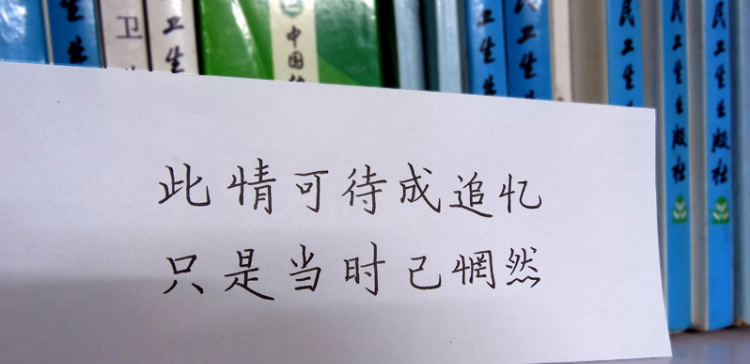 卫生
卫
卫生
中国
卫生
民卫生
民卫生
民卫生出版社
民卫生出版社
此情可待成追忆
只是当时已惘然